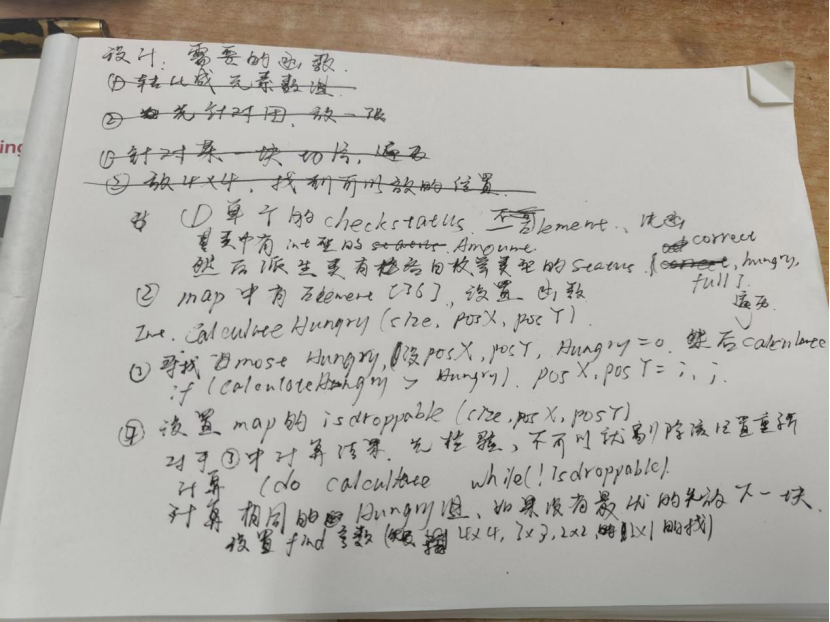 设计：需要的函数.
① 转化成元素数温.
② 先针对用，放一张
① 针对某一块切片，遍历
② 放4×4，找到可以放的位置.
① 单个的 checkstatus element、
其类中有 int型的 status Amount.
然后派生类有检查自枚举类型的 status { correct, hungry,
full}.
② map 中有 element [36]，设置 函数
Int. Calculate Hungry (size, posX, posY).
遍历
③ 寻找 most Hungry, 设 posX, posY, Hungry=0. 然后 calculate
if (calculateHungry > Hungry). posX, posY= i, j.
④ 设置 map 的 isdroppable (size, posX, posY)
对于③中计算结果，先检验，不可以就剔除该位置重新
计算 (do calculate while(!isdroppable).
计算相同的 Hungry 温，如果没有最优的先放下一块.
设置 find 函数 ( 4×4, 3×3, 2×2, 的 2×1 的找)